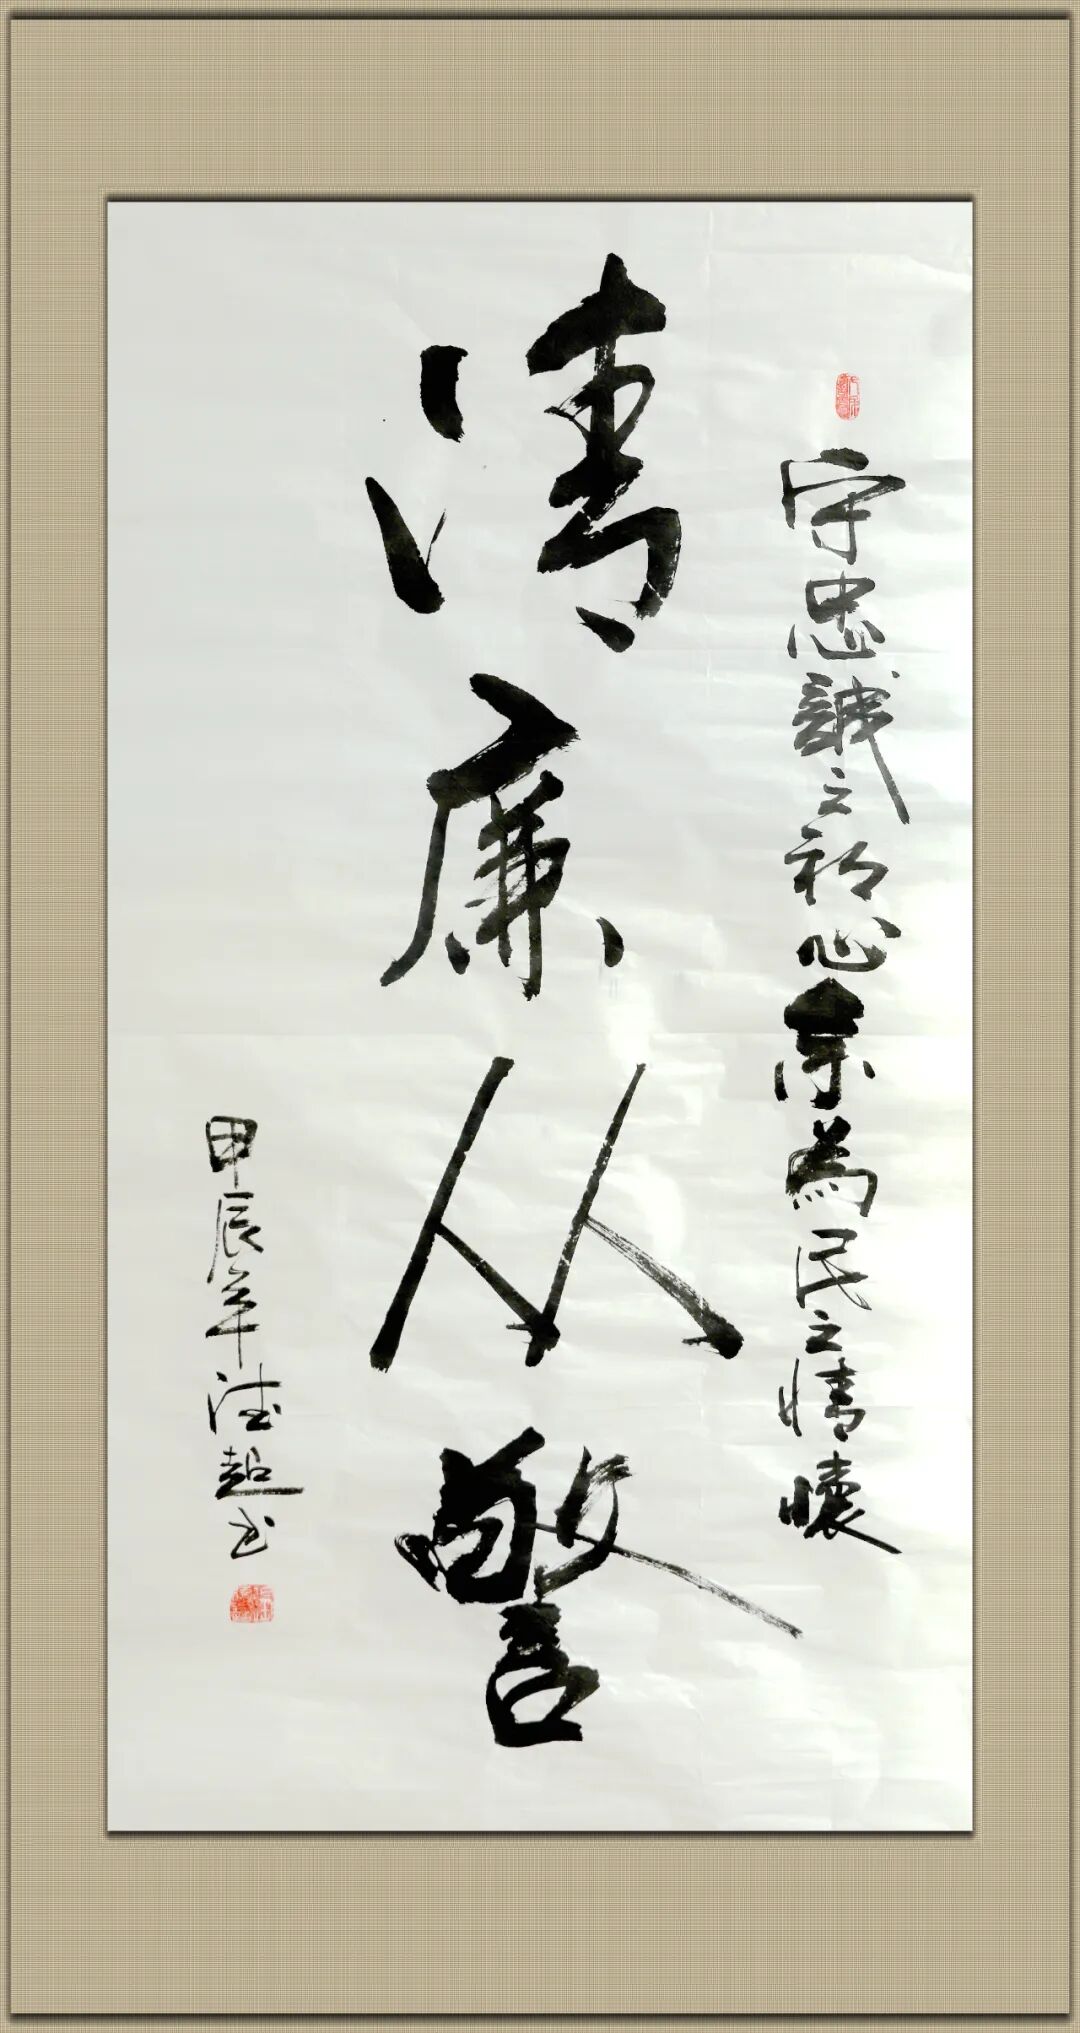 守忠誠之初心宗為民之情懷
清廉从警
甲辰年德超书